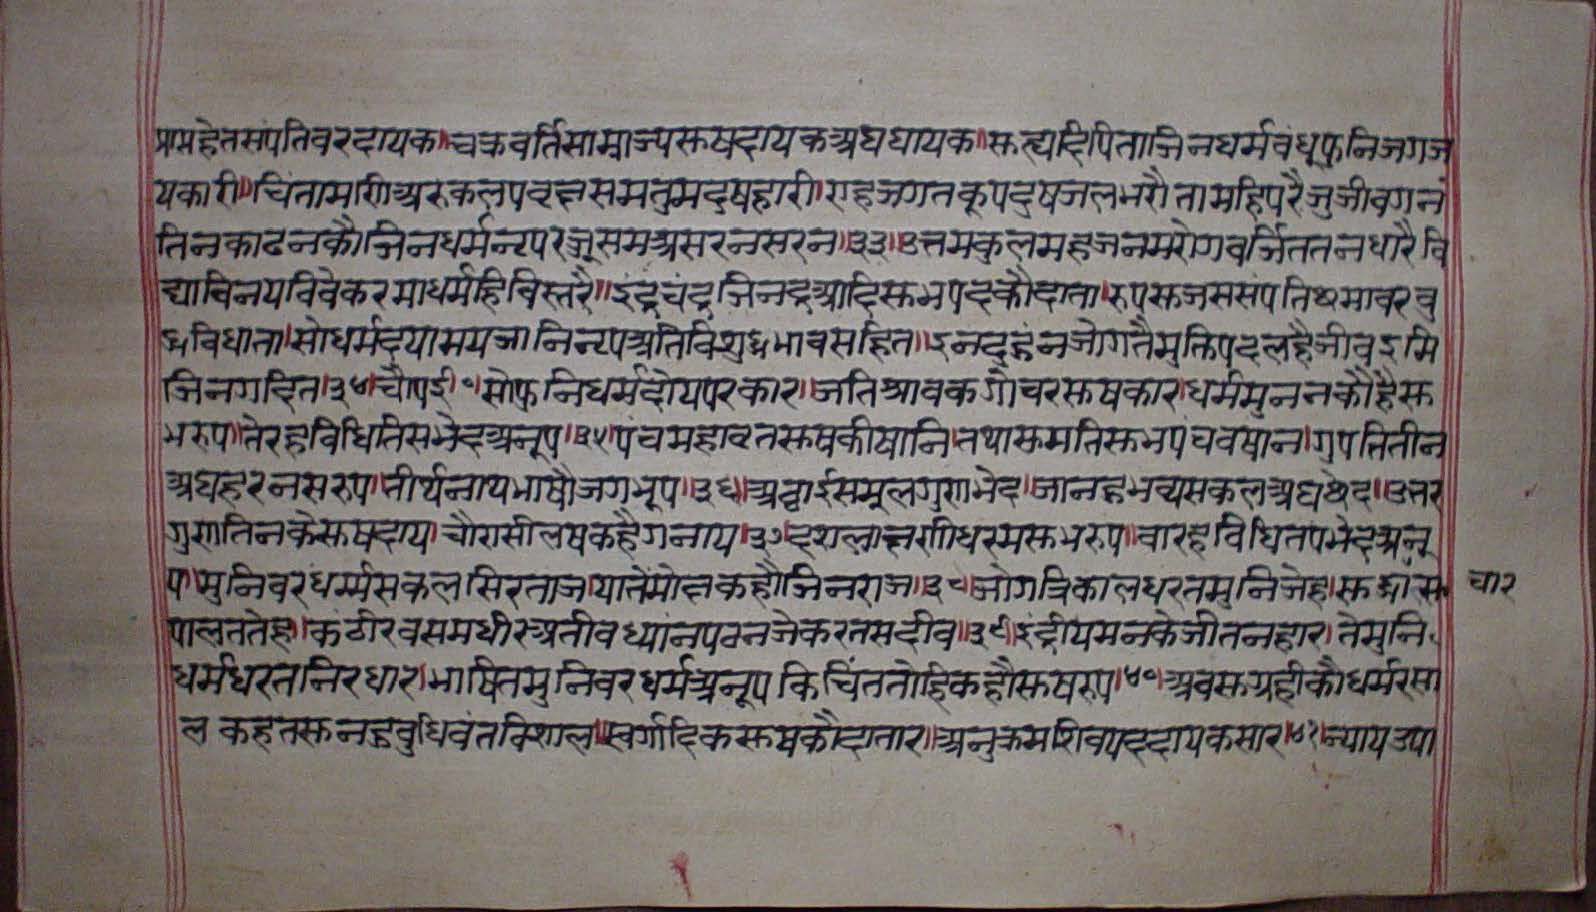 प्रामहेतसंपतिवरदायक॥चक्रवर्तिसाम्राज्यसुषदायकअघघायक॥सुत्यादिपिताजिनधर्मबंधुफुनिजगज
यकारी॥चिंतामणीअरुकलपवृक्षसमतुमदुषहारी॥एहजगतकूपदुषजलभरौतामहिपरैजुजीवगन
तिनकाढनकौजिनधर्मनृपरजूसमअसरनसरन॥३३॥उत्तमकुलमहजनमरोगवर्जिततनधारैवि
द्याविनयविवेकरमाधर्महिविस्तरै॥इंद्रचंद्रजिनद्रआदिसुभपदकौदाता॥रुपसुजससंपतिथमावरवु
धविधाता॥सोधर्मदयामयजानिनृपअतिविशुद्धभावसहित॥इनदुहूंनजोगतैमुक्तिपदलहैजीवइमि
जिनगदित॥३४॥चौपई॥सोफुनिधर्मदोयपरकार॥जतिश्रावकगोचरसुषकार॥धर्ममुननकौहैसु
भरुप॥तेरहविधितिसभेदअनूप॥३५॥पंचमहाव्रतसुषकीषानि॥तथासुमतिसुभपंचवषान॥गुपतितीन
अघहरनसरुप॥तीर्थनाथभाषौजगभूप॥३६॥अठ्ठाईसमूलगुणभेद॥जानहुभव्यसकलअघछेद॥उत्तर
गुणतिनकेसुषदाय॥चौरासीलषकहैगनाय॥३७॥दशलाक्षणीधरमसुभरुप॥वारहविधितपभेदअनू
प॥मुनिवरधर्म्मसकलसिरताज॥यातेंमोक्षकहौजिनराज॥३८॥जोगत्रिकालधरतमुनिजेह॥सु चार
पालततेह॥कंठीरवसमधीरअतीवध्यांनपठनजेकरतसदीव॥३९॥इंद्रीयमनकेजीतनहार॥तेमुनि
धर्मधरतनिरधार॥भाषितमुनिवरधर्मअनूपकिचिंततोहिकहौसुषरुप॥४०॥अवसुग्रहीकौधर्मरसा
लकहतसुनहुबुधिवंतविशाल॥स्वर्गादिकसुषकौदातार॥अनुक्रमशिवपददायकसार॥४१॥न्यायउपा